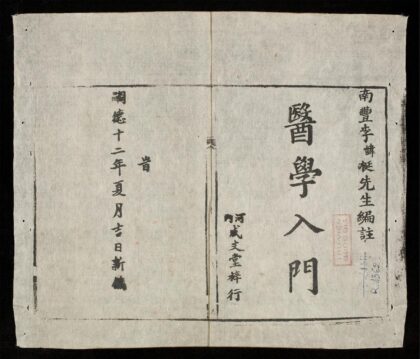 南豐李諱梴先生編註
醫學入門
河內
文堂梓行
旹
嗣德十二年夏月吉日新鐫